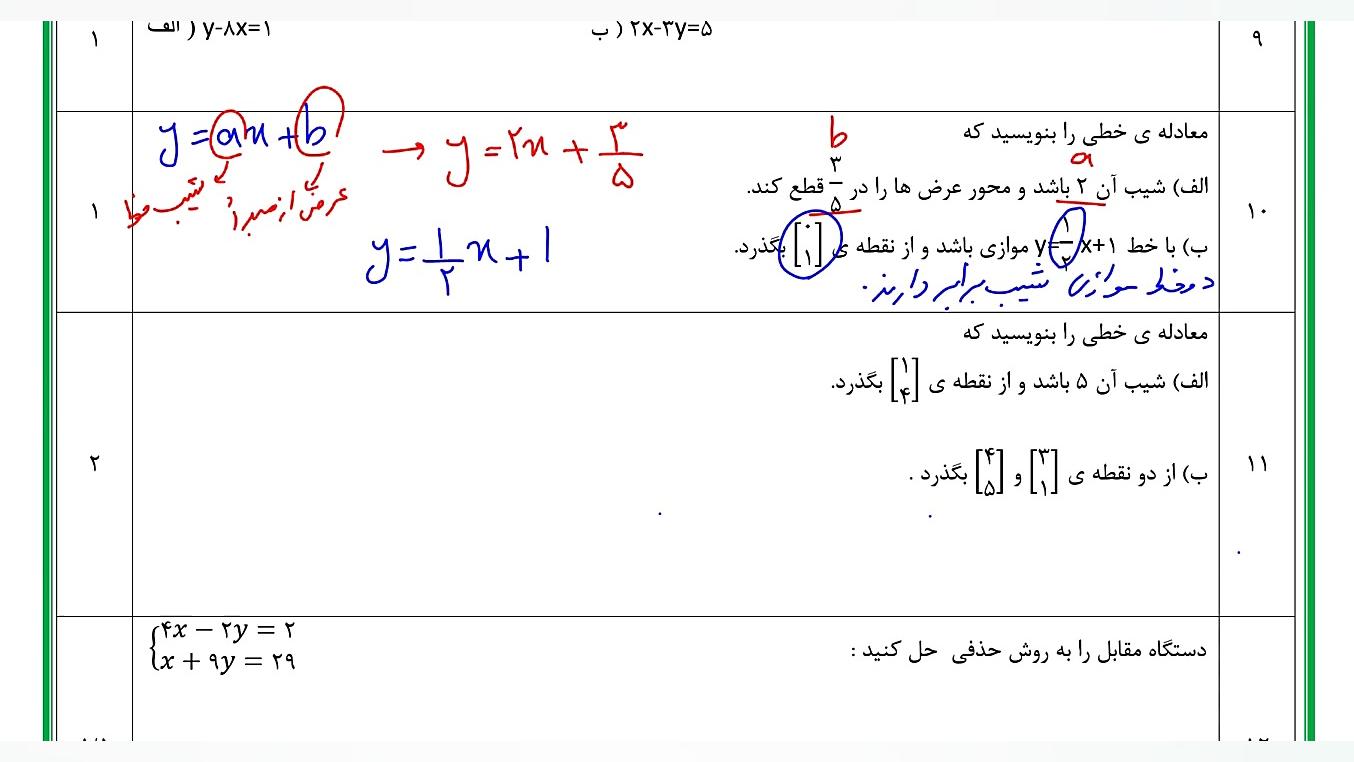 ۹
الف ) y-۸x=۱
ب ) ۲x-۳y=۵
۱
۱۰
معادله ی خطی را بنویسید که
الف) شیب آن ۲ باشد و محور عرض ها را در ۳/۵ قطع کند.
a
b
ب) با خط y=۱/۲x+۱ موازی باشد و از نقطه ی [۰ ۱] بگذرد.
دو خط موازی شیب برابر دارند.
y = ax + b → y = ۲x + ۳/۵
شیب خط
عرض از مبدأ
y = ۱/۲ x + ۱
۱
۱۱
معادله ی خطی را بنویسید که
الف) شیب آن ۵ باشد و از نقطه ی [۱ ۴] بگذرد.
ب) از دو نقطه ی [۳ ۱] و [۴ ۵] بگذرد .
۲
دستگاه مقابل را به روش حذفی حل کنید :
۴x − ۲y = ۲
x + ۹y = ۲۹